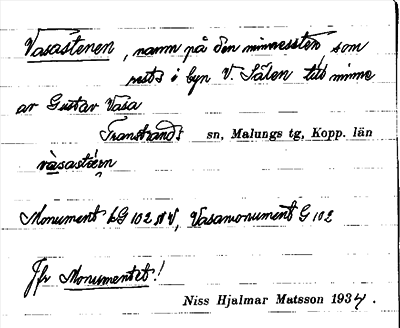 Vasastenen, namn på den minnessten, som
rests i byn V. Sälen till minne
av Gustav Vasa
Transtrands sn, Malungs tg, Kopp. län
vàsastèn
Monument LG 102 NV, Vasamonument G 102
Jfr Monumentet!
Niss Hjalmar Matsson 1934.